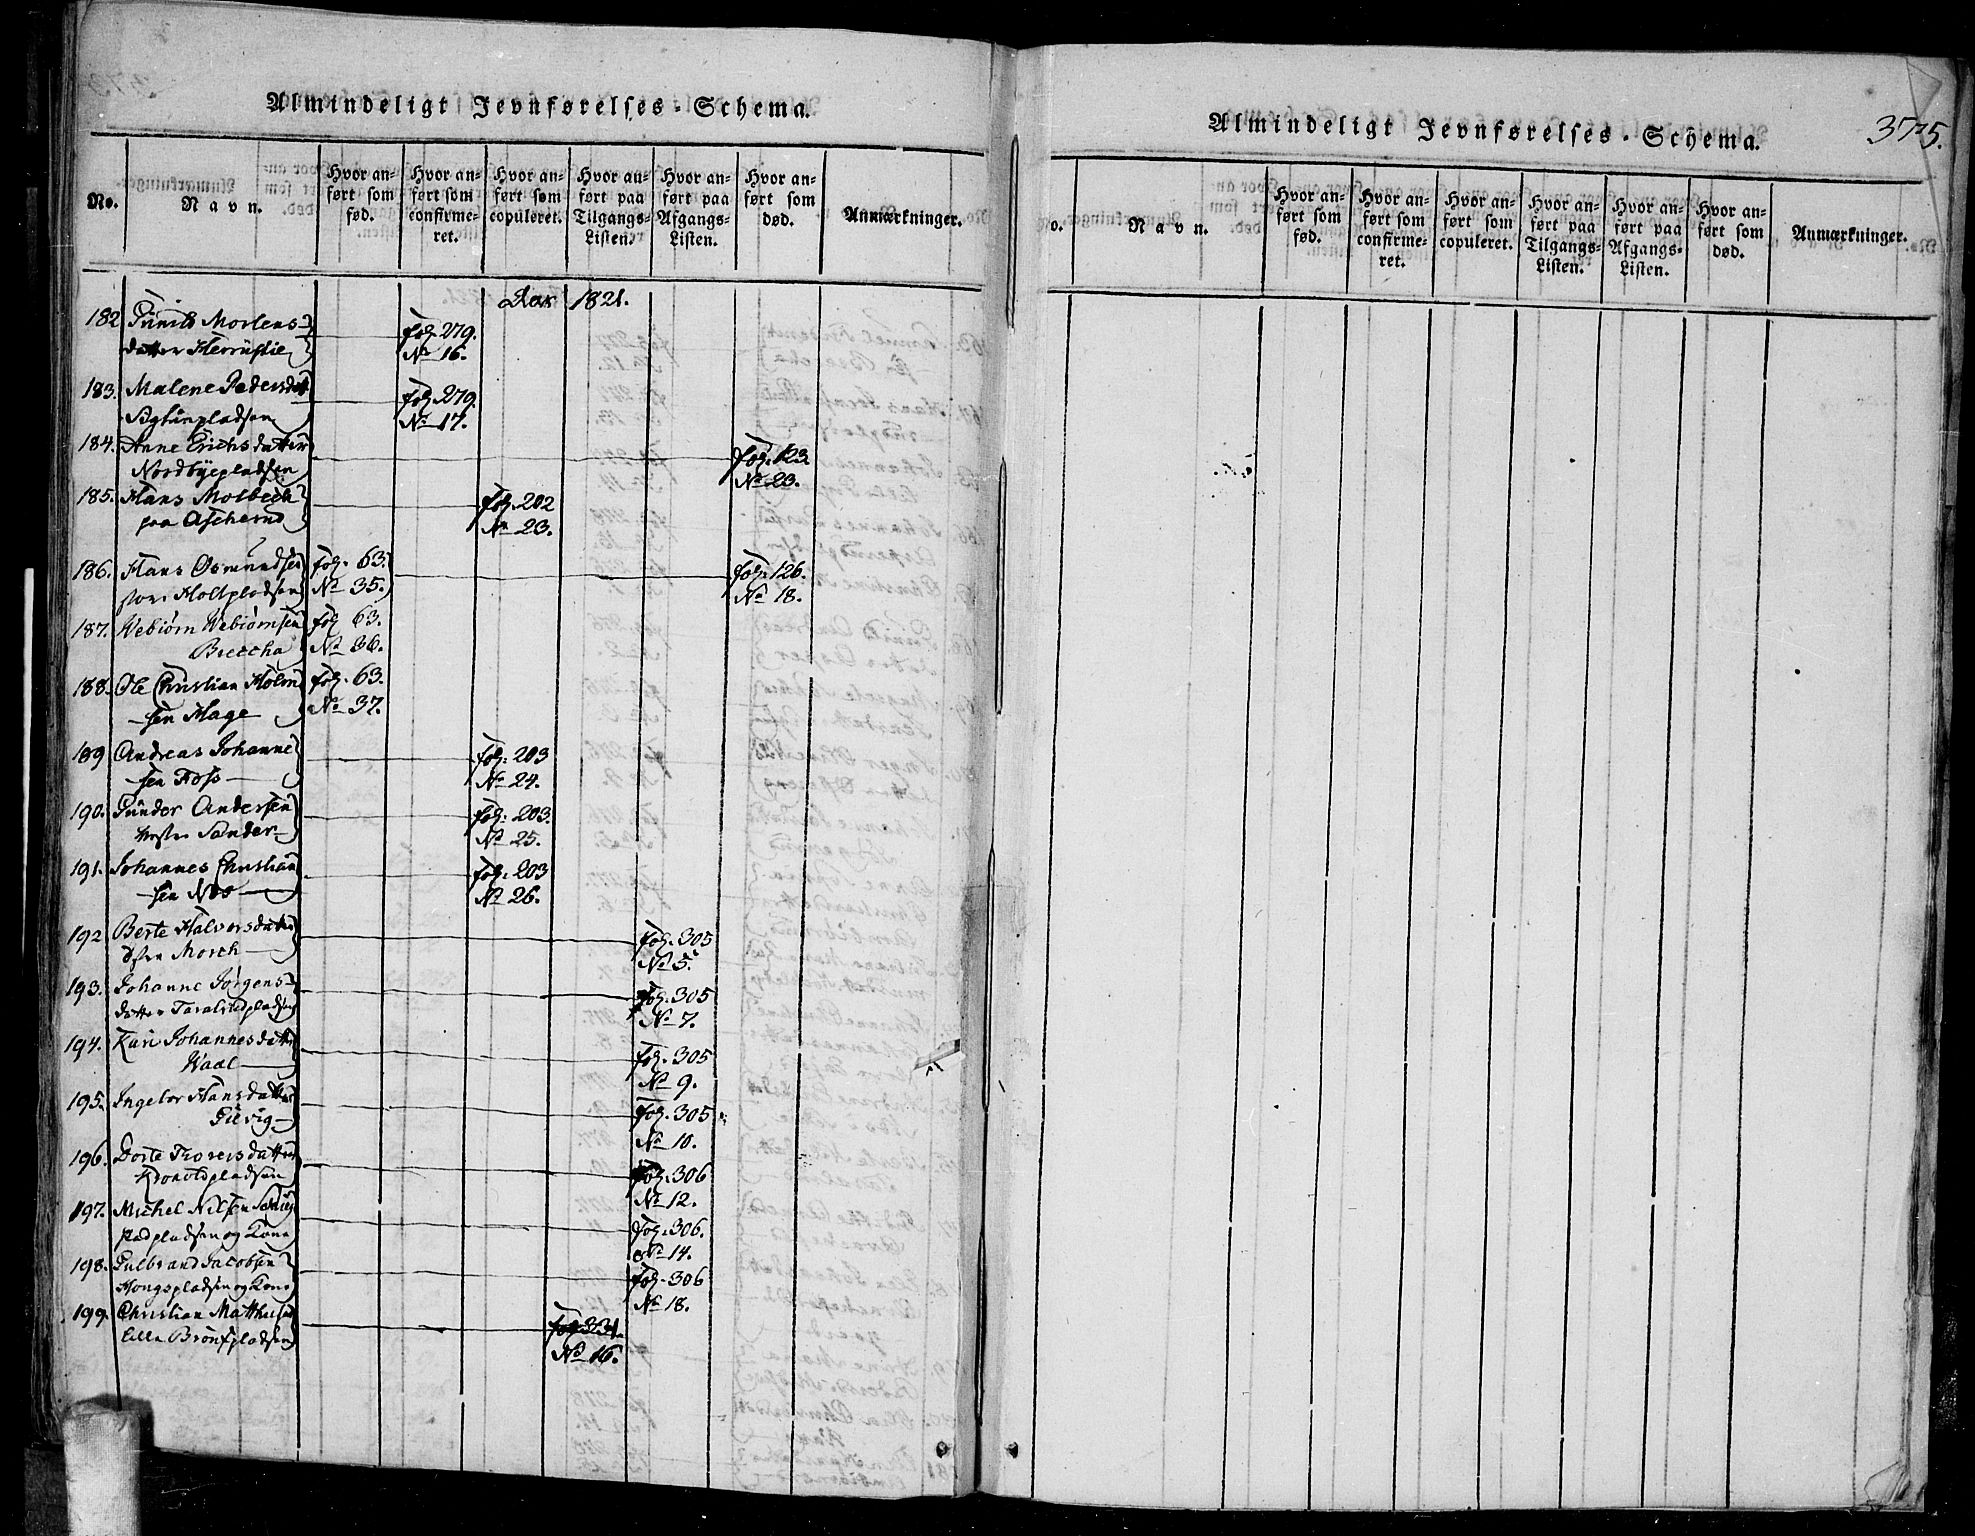 Almindeligt Jevnførelses-Schema.
No.
Navn.
Hvor an-
ført som
fød.
Hvor an-
ført som
confirme-
ret.
Hvor an-
ført som
copuleret.
Hvor an-
ført paa
Tilgangs-
Listen.
Hvor an-
ført paa
Afgangs-
Listen.
Hvor an-
ført som
død.
Anmærkninger.
Aar 1821.
182 Gunild Mortens-
datter
fol. 279.
No 16.
183. Malene Pedersdatt
fol. 279.
No 17.
184. Anne Erichsdatter
Nordbyepladsen
fol. 123
No 23.
185. Hans Molbech
paa Aschernd
fol. 202
No 23.
186. Hans Osmundsen
store Holtpladsen
fol. 63.
No 35.
fol. 126.
No 18.
187. Webiørn Webiørnsen
Breecha
fol. 63.
No 36.
188. Ole Christian Holm
-sen Hage
fol. 63.
No 37.
189 Andreas Johanne
sen Foss
fol. 203
No 24.
190. Gunder Andersen
Sander
fol. 203.
No 25.
191. Johannes Christian
sen Næs
fol. 203
No 26.
192 Berte Halvorsdatter
Morch
fol. 305
No 5.
193. Johanne Jørgens-
datter Taralrudpladsen
fol. 305
No 7.
194. Kari Johannesdatter
Waal
fol. 305
No 9.
195. Ingebor Hansdatter
fol. 305
No 10.
196. Dorte Torersdatter
Kronoldpladsen
fol. 306
No 12.
197. Michel Nilsen
pladsen og Kone
fol. 306.
No 14.
198. Gulbrand Jacobsen
Hongspladsen og Kone
fol. 306
No 18.
199. Christian Matthisen
lille Brønspladsen
fol. 331.
No 16.
Almindeligt Jevnførelses-Schema.
375.
o.
Navn.
Hvor an-
ført som
fød.
Hvor an-
ført som
confirme-
ret.
Hvor an-
ført som
copuleret.
Hvor an-
ført paa
Tilgangs-
Listen.
Hvor an-
ført paa
Afgangs-
Listen.
Hvor an-
ført som
død.
Anmærkninger.